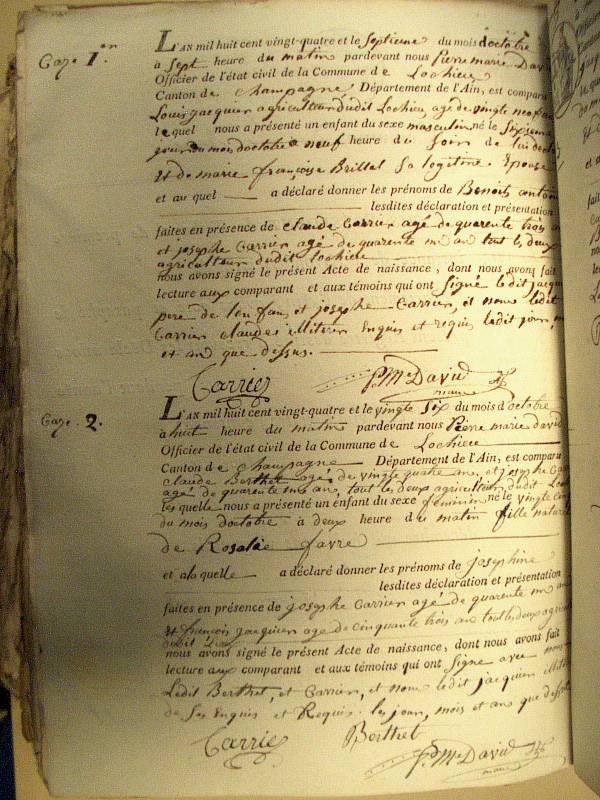 Caze 1er
L'AN mil huit cent vingt-quatre et le septieme du mois doctobre
à sept heure du matin pardevant nous pierre marie David
Officier de l'état civil de la Commune de Lochieu
Canton de champagne Département de l'Ain, est comparu
Louis jacquier agriculteur dudit Lochieu, agé de vingt neuf ans
lequel nous a présenté un enfant du sexe masculin né le sixieme
jour du mois doctobre a neuf heure du soir de lui
et de marie françoise Brillat sa legitime Epouse
et au quel a déclaré donner les prénoms de Benoit
lesdites déclaration et présentation
faites en présence de claude Carrier agé de quarente trois ans
et josephe Carrier agé de quarente un an tout les deux
agriculteur dudit Lochieu
nous avons signé le présent Acte de naissance, dont nous avons fait
lecture aux comparant et aux témoins qui ont signé ledit jacquier
pere de len fan, et josephe Carrier, et nom ledit
Carrier claude illiteré Enquis et requis ledit jour,
et an que dessus.
Carrier P. Me David
maire
Caze 2.
L'AN mil huit cent vingt-quatre et le vingte six du mois d'octobre
à huit heure du matin pardevant nous pierre marie david
Officier de l'état civil de la Commune de Lochieu
Canton de champagne Département de l'Ain, est comparu
claude Berthet agé de vingte quatre ans, et josephe
agé de quarente un ans, tout les deux agriculteur dudit
lesquelle nous a présenté un enfant du sexe feminin né le vingte
du mois doctobre à deux heure du matin fille naturel
de Rosalie favre
et a laquelle a déclaré donner les prénoms de josephine
lesdites déclaration et présentation
faites en présence de josephe Carrier agé de quarente un an
et françois jacquier age de cinquante trois ans tout les deux
dudit
nous avons signé le présent Acte de naissance, dont nous avons fait
lecture aux comparant et aux témoins qui ont signé avec nous
Ledit Berthet, et Carrier, et nom ledit jacquier illiteré
de ses Enquis et Requis. les jour, mois et an que dessus
Carrier Berthet
P. Me David
maire